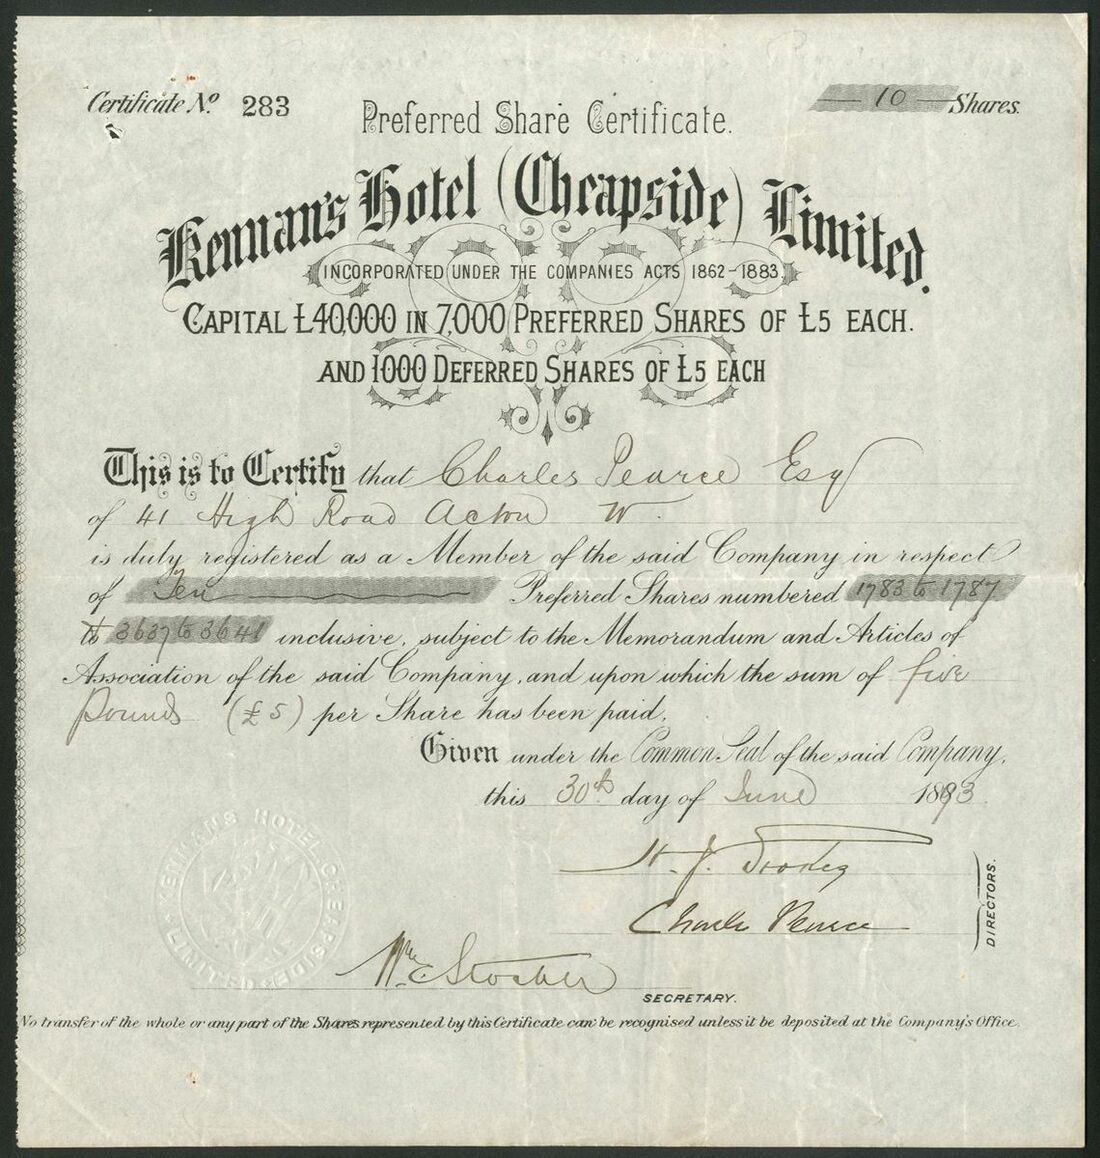 Certificate No 283
10 Shares.
Preferred Share Certificate.
Kennan's Hotel (Cheapside) Limited.
INCORPORATED UNDER THE COMPANIES ACTS 1862-1883.
CAPITAL £40,000 IN 7,000 PREFERRED SHARES OF £5 EACH.
AND 1000 DEFERRED SHARES OF £5 EACH
This is to Certify that Charles Pearce Esq
of 41 High Road Acton W.
is duly registered as a Member of the said Company in respect
of Ten Preferred Shares numbered 1783 to 1787
to 3637 to 3641 inclusive, subject to the Memorandum and Articles of
Association of the said Company, and upon which the sum of five
Pounds (£5) per Share has been paid.
Given under the Common Seal of the said Company,
this 30th day of June 1893
H. J.
Charles Pearce
DIRECTORS.
KENNAN'S HOTEL CHEAPSIDE LIMITED
Wm Stocker
SECRETARY.
No transfer of the whole or any part of the Shares represented by this Certificate can be recognised unless it be deposited at the Company's Office.